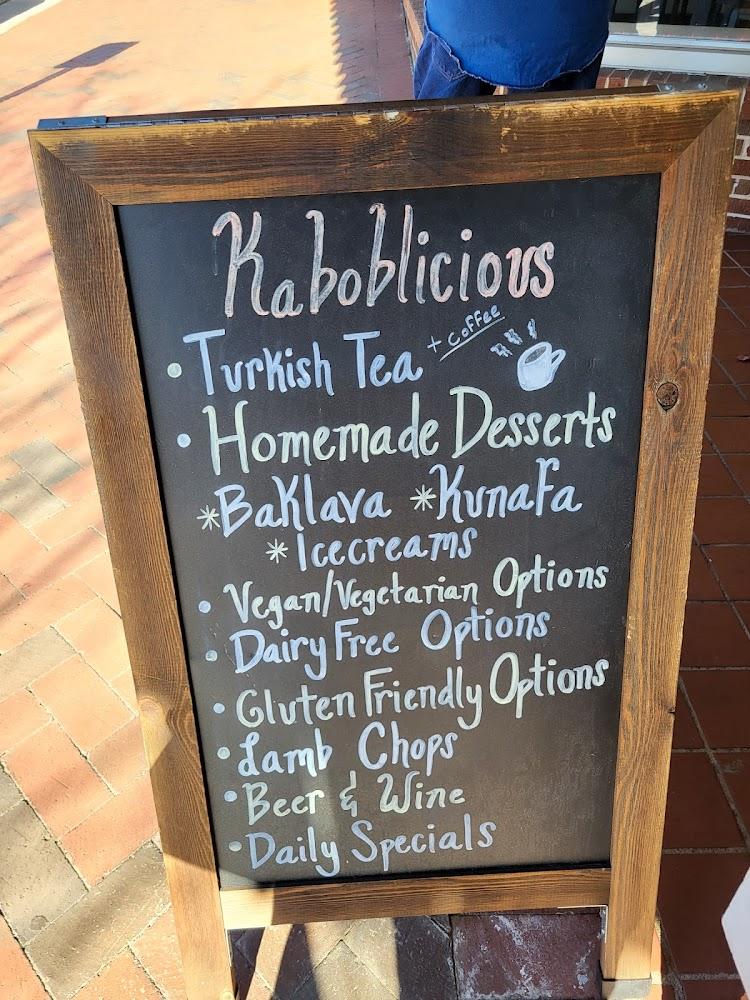 Kaboblicious
• Turkish Tea + Coffee
• Homemade Desserts
*Baklava *Kunafa
*Icecreams
• Vegan/Vegetarian Options
• Dairy Free Options
• Gluten Friendly Options
• Lamb Chops
• Beer & Wine
• Daily Specials